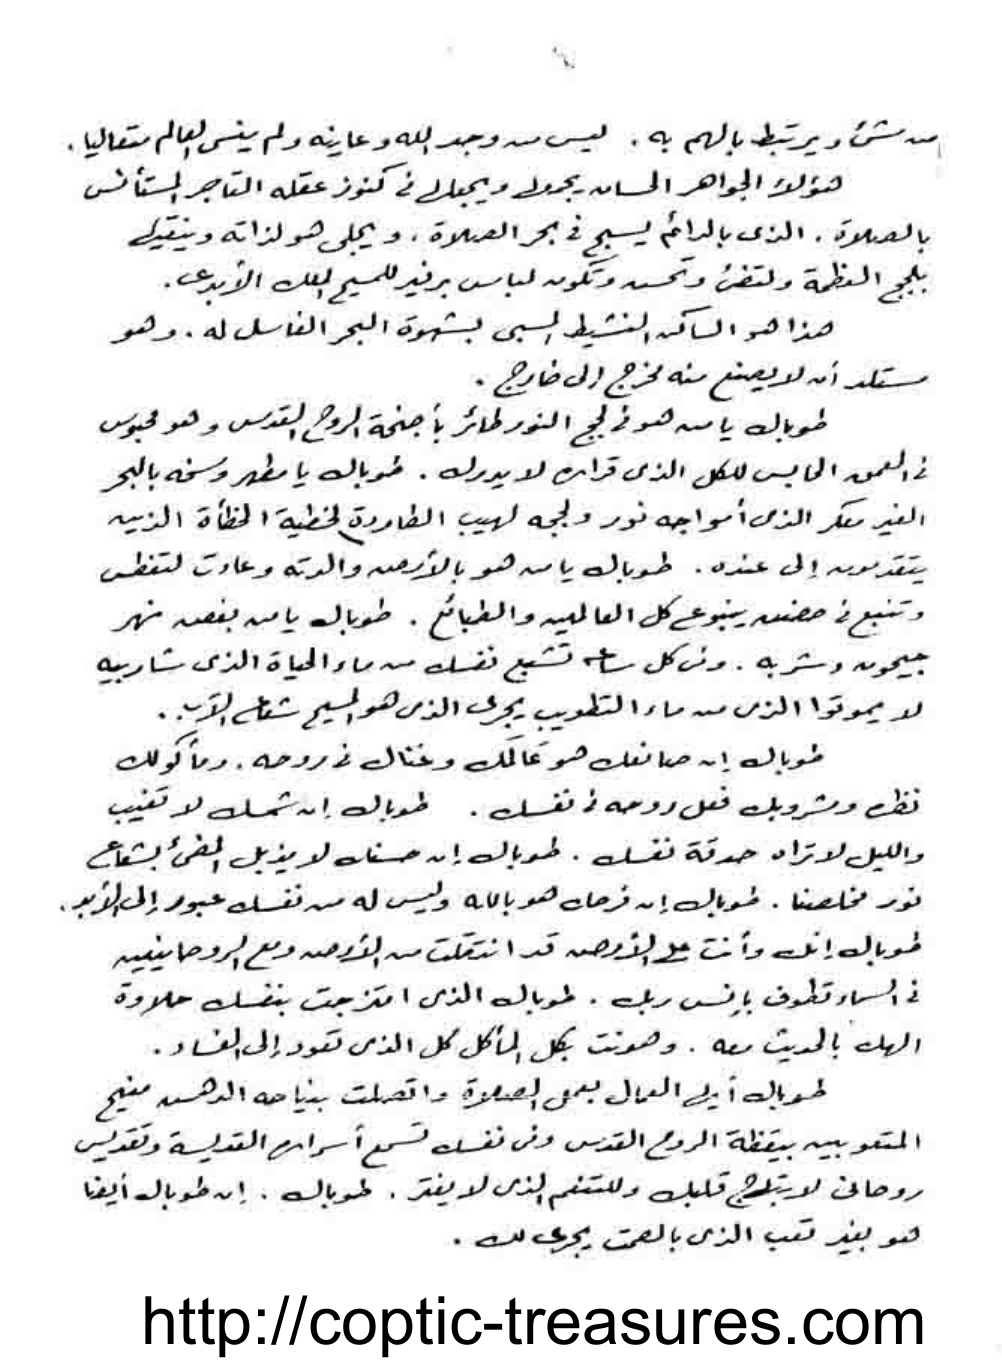 من شئ ويرتبط بالهم به . ليس من وجد الله وعاينه ولم ينسى العالم متعاليا .
هؤلاء الجواهر الحسان يجول ويجعل في كنوز عقله التاجر المستأنس
بالصلاة . الذى بالدائم يسبح في بحر الصلاة . ويجلى هو لذاته
بلجج العظمة ولتضئ وتحسن وتكون لباس برفير للمسيح الملك الأبدى .
هذا هو الساكن النشيط المسبى بشهوة البحر الغاسل له . وهو
مستلد أن لا يصنع منه مخرج إلى خارج .
طوباك يا من هو في لجج النور طائر بأجنحة الروح القدس وهو محبوس
في العمق الحابس للكل الذى قراره لا يدرك . طوباك يا مطهر وسخه بالبحر
الغير معكر الذى أمواجه نور ولججه لهيب الطاردة لخطية الخطأة الذين
يتقدمون إلى عنده . طوباك يا من هو بالأرض والدته وعادت لتغطس
وتنبع في حضن ينبوع كل العالمين والطبائع . طوباك يا من بغصه نهر
جيحون وشربه . وفى كل ساعة تشبع نفسك من ماء الحياة الذى شاربيه
لا يموتوا الذى من ماء التطويب يجرى الذى هو المسيح شعاع الآب .
طوباك إن صانعك هو عالمك وغناك في روحه . ومأكولك
نظره ومشروبك فعل روحه في نفسك . طوباك إن شمسك لا تغيب
والليل لا تراه حدقة نفسك . طوباك إن حسنك لا يذبل المضئ بشعاع
نور مخلصنا . طوباك إن فرحك هو بالله وليس له من نفسك عبور إلى الأبد .
طوباك إنك وأنت على الأرض قد انتقلت من الأرض ومع الروحانيين
في السماء تطوف بإنس ربك . طوباك الذى امتزجت بنفسك حلاوة
الهك بالحديث معه . وهونت بكل المأكل كل الذى تقود إلى الفساد .
طوباك أيها العمال بعمل الصلاة واتصلت بنياحه الدهس منيح
المتعوبين بيقظة الروح القدس وفى نفسك تسمع أسراره القديسة وتقديس
روحانى لابتلاج قلبك وللتنعم الذى لا يفتر . طوباك . إن طوباك أيضا
هو بغير تعب الذى بالصمت يجرى لك .
http://coptic-treasures.com